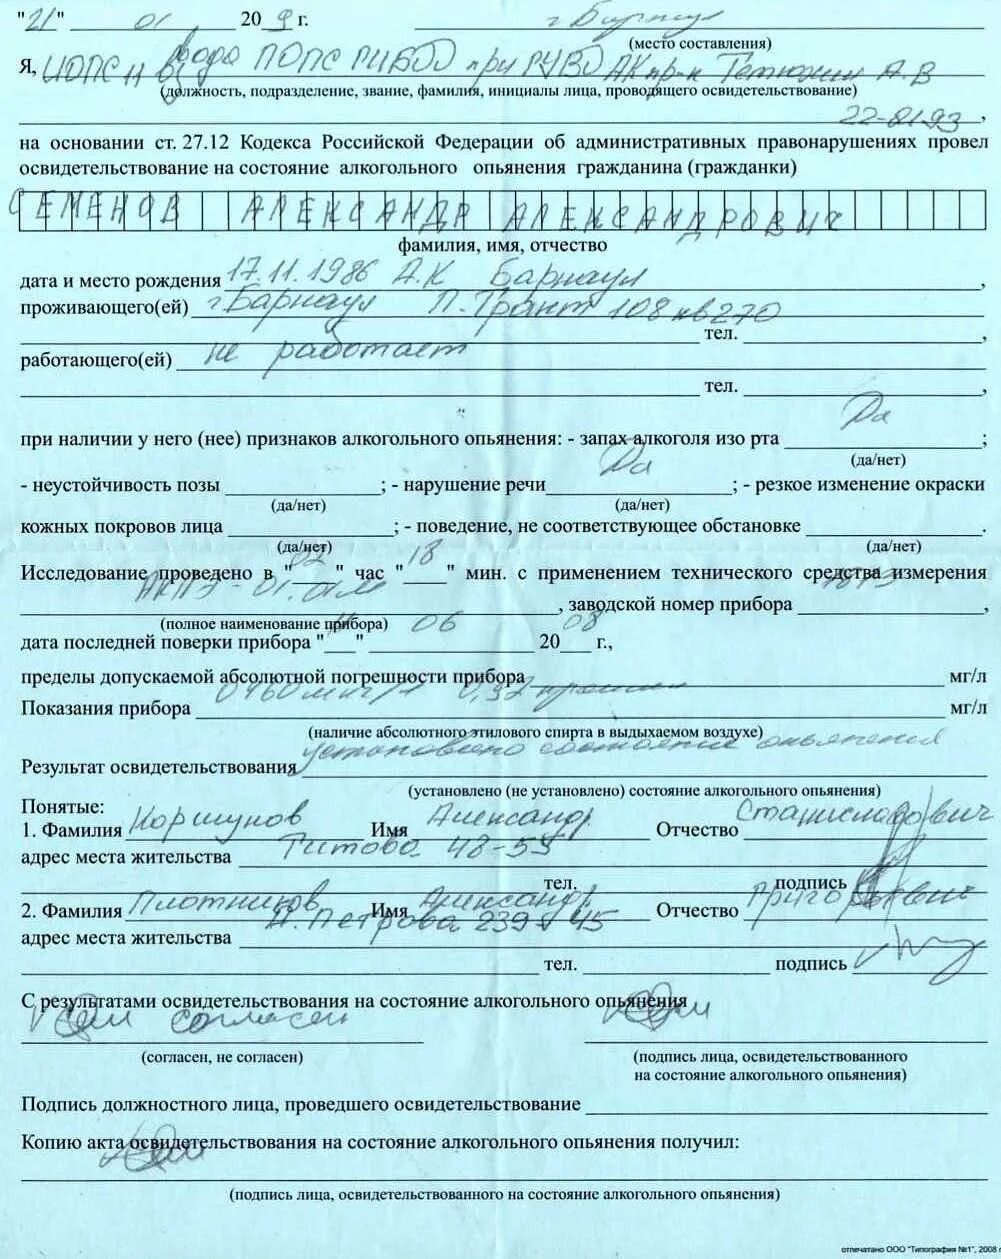 "21" 01 20 9 г. г Барнаул
(место составления)
Я, взвода при РУВД АК пр-к Тетюхин А.В
(должность, подразделение, звание, фамилия, инициалы лица, проводящего освидетельствование)
22-8193,
на основании ст. 27.12 Кодекса Российской Федерации об административных правонарушениях провел
освидетельствование на состояние алкогольного опьянения гражданина (гражданки)
СЕМЕНОВ АЛЕКСАНДР АЛЕКСАНДРОВИЧ
фамилия, имя, отчество
дата и место рождения 17.11.1986 А.К Барнаул,
проживающего(ей) г. Барнаул П. Тракт 108 кв 270
тел. ,
работающего(ей) не работает
тел. ,
при наличии у него (нее) признаков алкогольного опьянения: - запах алкоголя изо рта Да;
(да/нет)
- неустойчивость позы ; - нарушение речи Да; - резкое изменение окраски
(да/нет) (да/нет)
кожных покровов лица ; - поведение, не соответствующее обстановке .
(да/нет) (да/нет)
Исследование проведено в "02" час "18" мин. с применением технического средства измерения
АКПЭ-01.01М, заводской номер прибора ,
(полное наименование прибора)
дата последней поверки прибора " " 06 2008 г.,
пределы допускаемой абсолютной погрешности прибора мг/л
Показания прибора 0,92 мг/л
(наличие абсолютного этилового спирта в выдыхаемом воздухе)
Результат освидетельствования установлено состояние опьянения
(установлено (не установлено) состояние алкогольного опьянения)
Понятые:
1. Фамилия Коршунов Имя Александр Отчество Станиславович
адрес места жительства Титова 48-55
тел. подпись
2. Фамилия Плотников Имя Александр Отчество Григорьевич
адрес места жительства А. Петрова 239 - 45
тел. подпись
С результатами освидетельствования на состояние алкогольного опьянения
согласен
(согласен, не согласен) (подпись лица, освидетельствованного
на состояние алкогольного опьянения)
Подпись должностного лица, проведшего освидетельствование
Копию акта освидетельствования на состояние алкогольного опьянения получил:
(подпись лица, освидетельствованного на состояние алкогольного опьянения)
отпечатано ООО "Типография №1", 2008 г